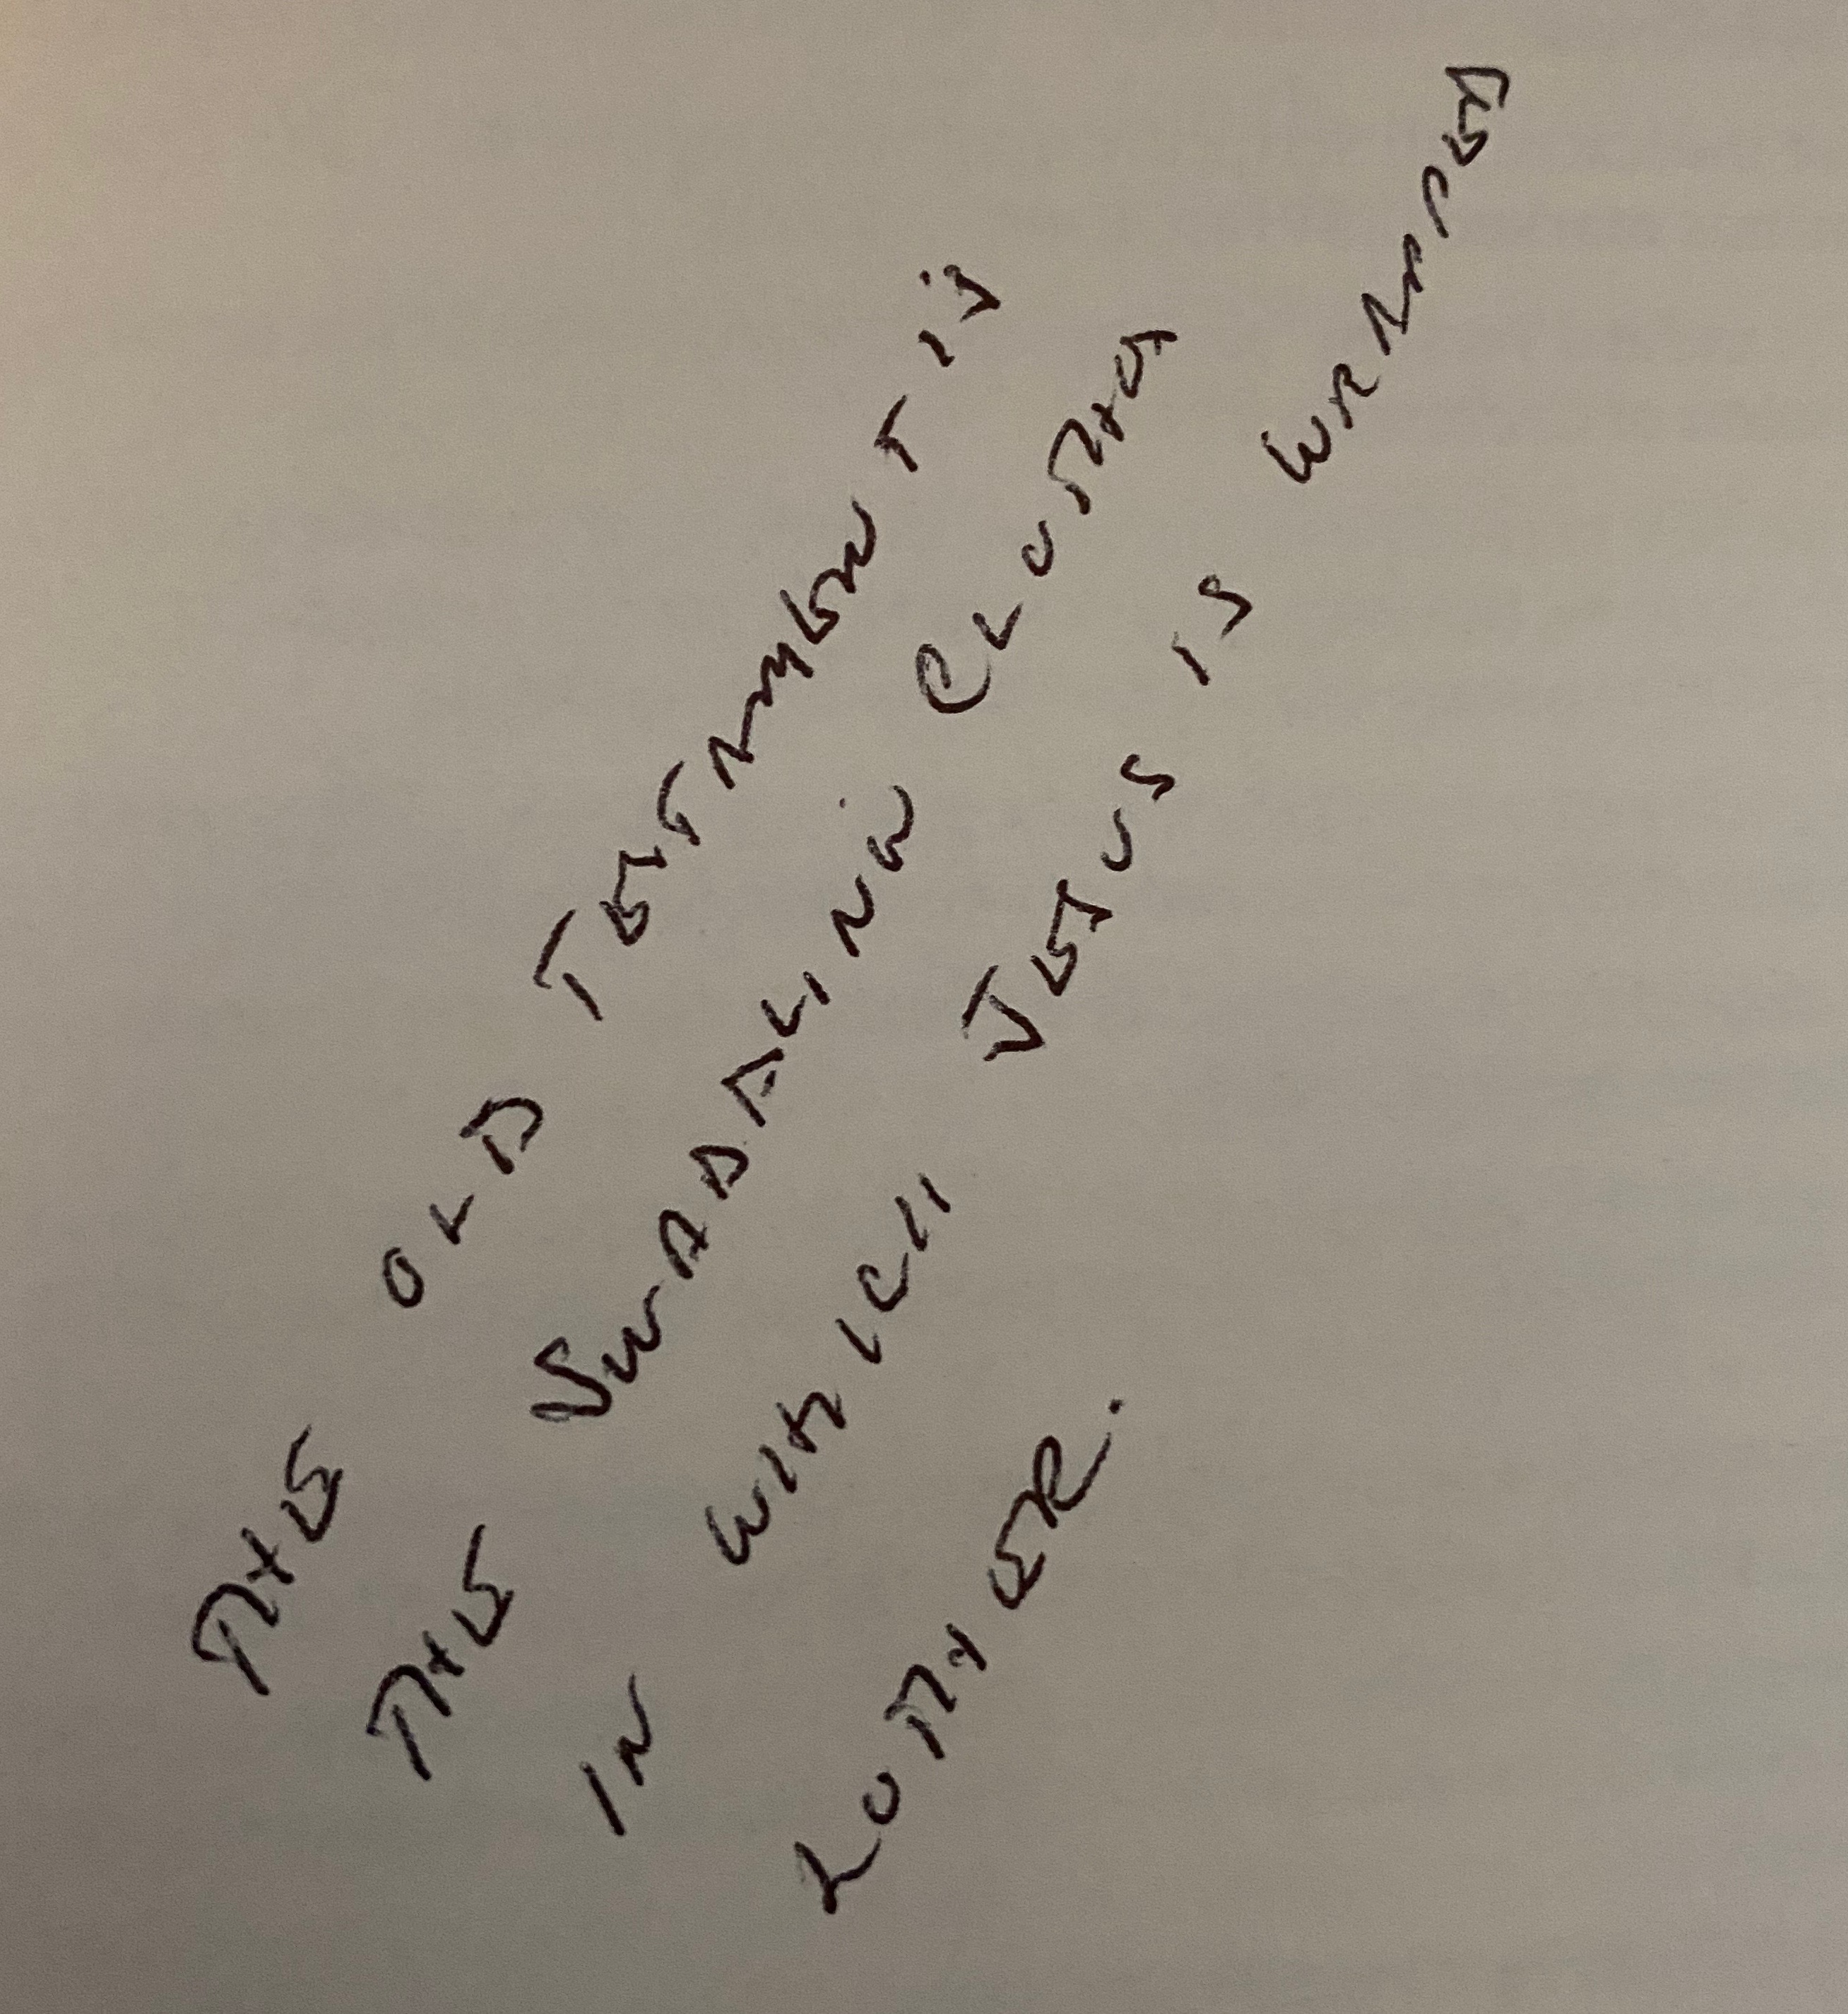 THE OLD TESTAMENT IS
THE SWADDLING CLOTHS
IN WHICH JESUS IS WRAPPED
LUTHER.